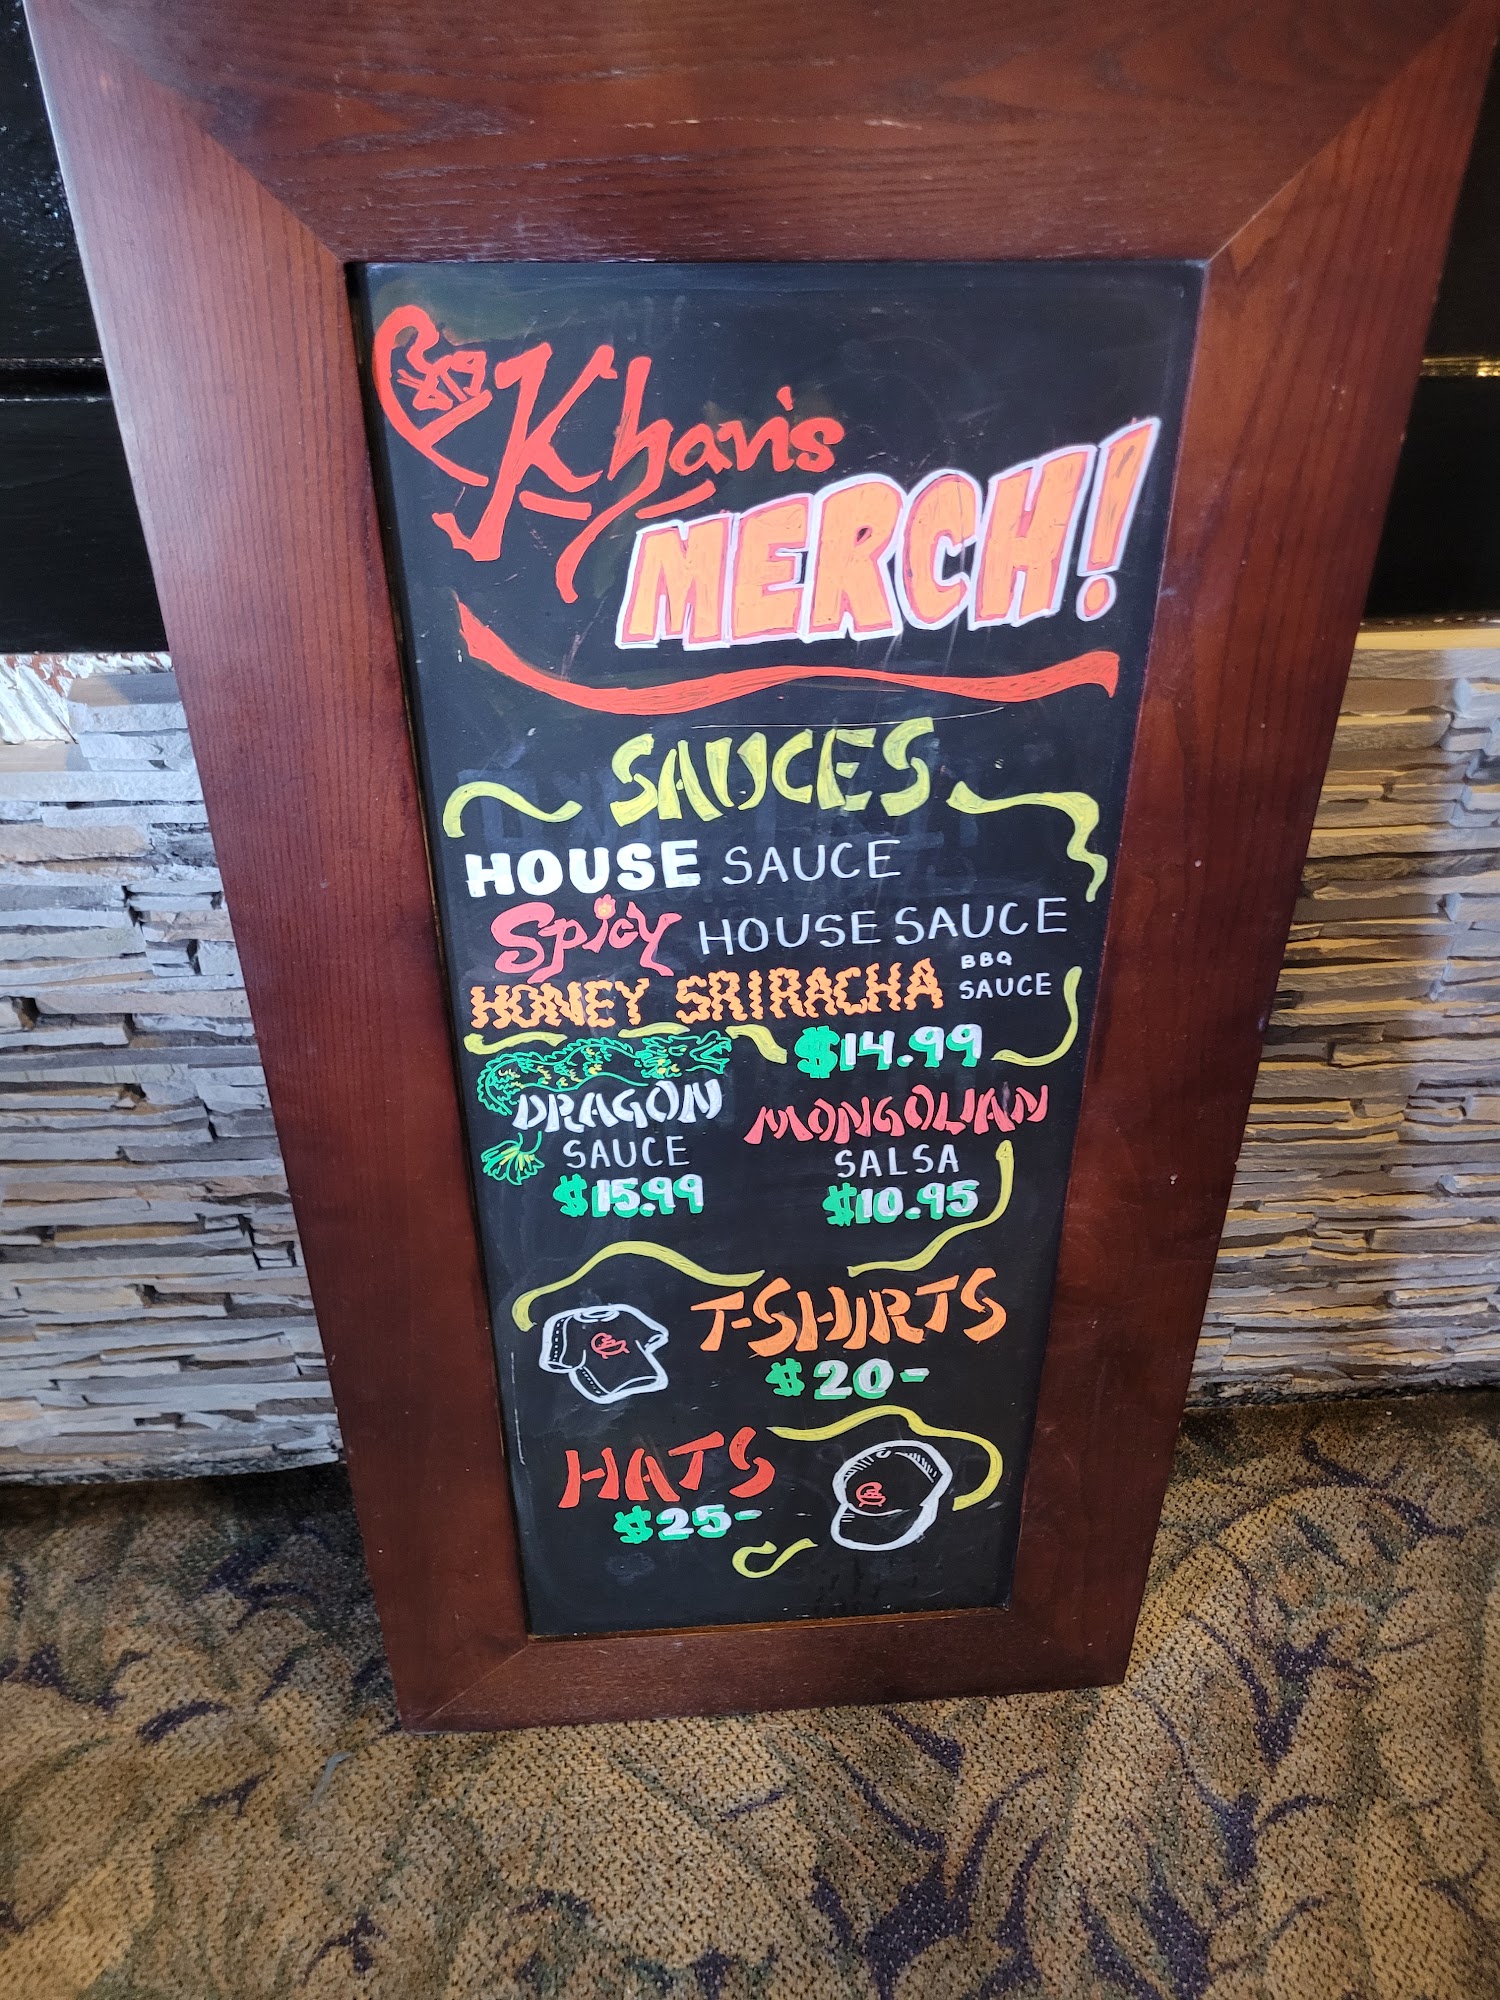 Khan's
MERCH!
SAUCES
HOUSE SAUCE
Spicy HOUSE SAUCE
HONEY SRIRACHA BBQ SAUCE
$14.99
DRAGON
SAUCE
$15.99
MONGOLIAN
SALSA
$10.95
T-SHIRTS
$20-
HATS
$25-